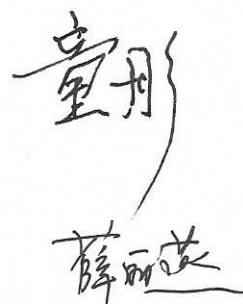 童彤
薛丽英